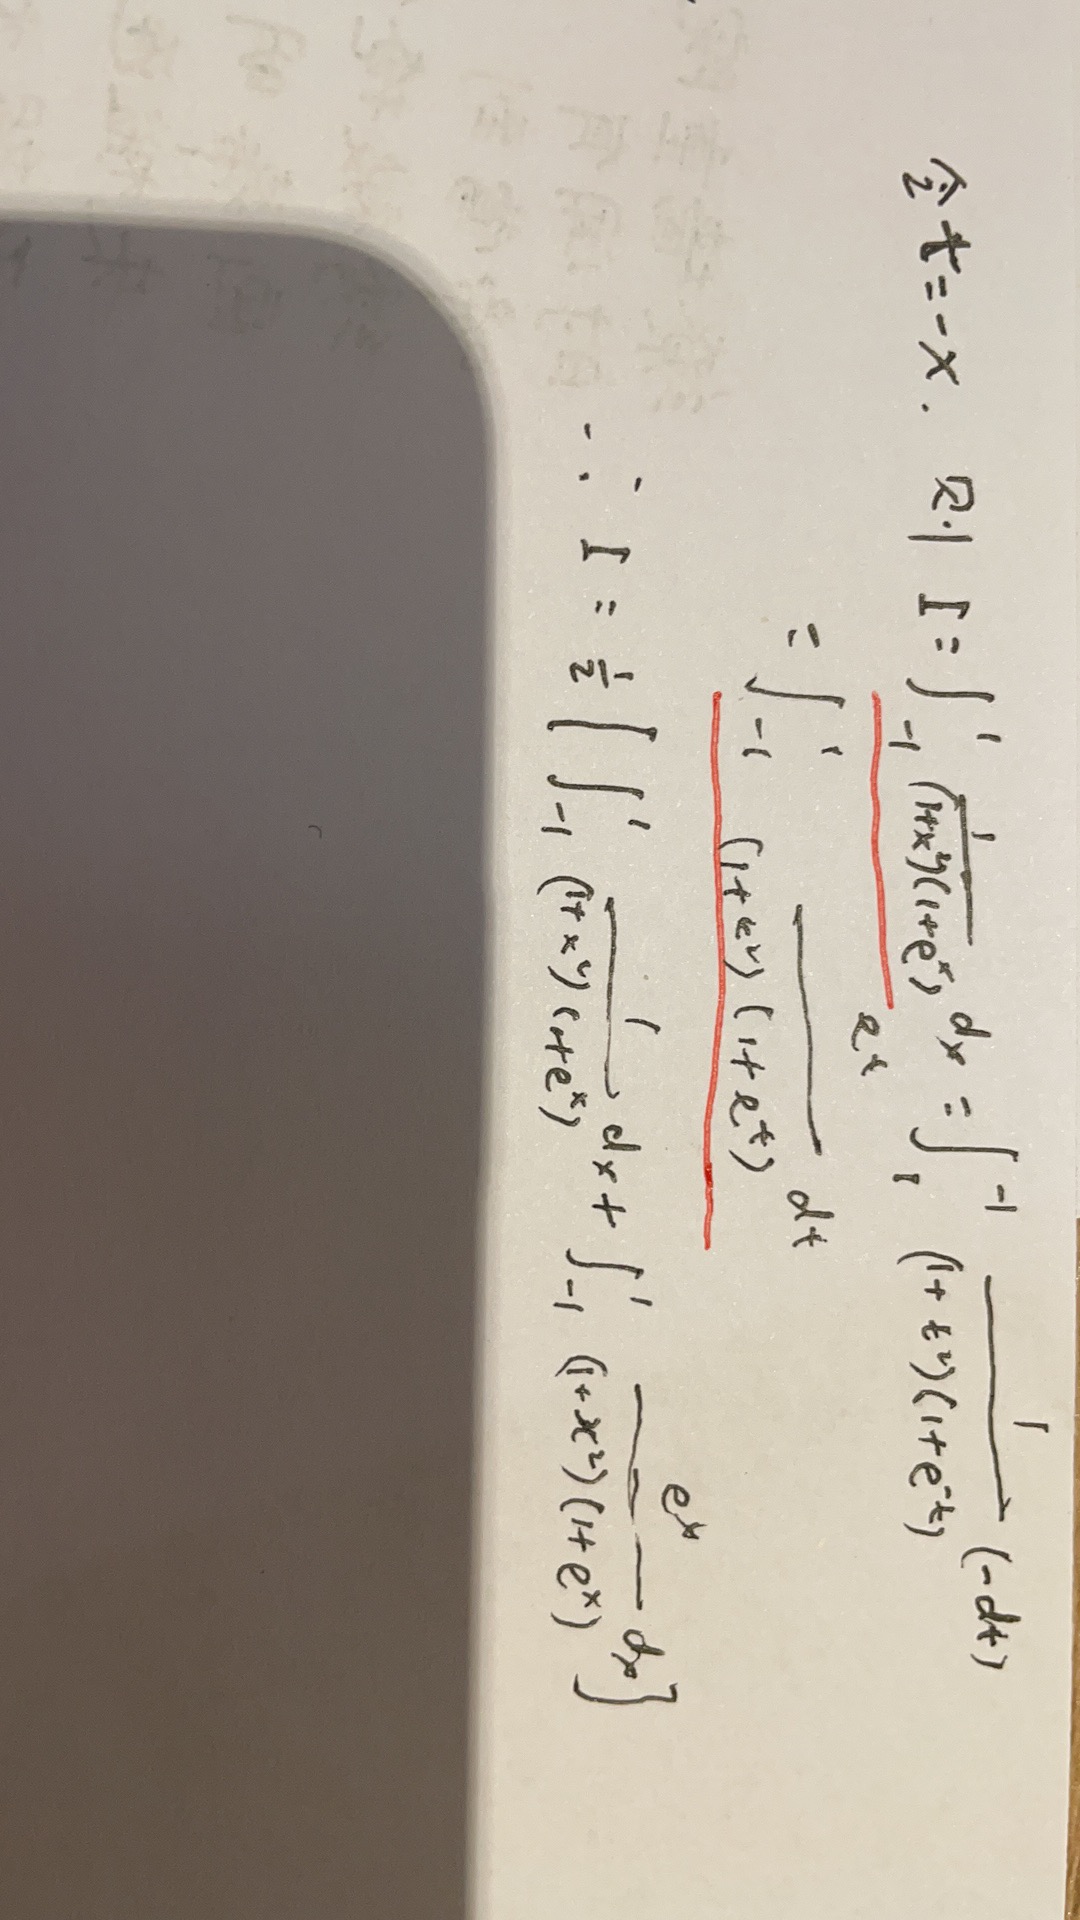 令 t=-x. 则 I = ∫_{-1}^{1} \frac{1}{(1+x²)(1+e^x)} dx = ∫_{1}^{-1} \frac{1}{(1+t²)(1+e^{-t})} (-dt)
= ∫_{-1}^{1} \frac{e^t}{(1+t²)(1+e^t)} dt
∴ I = \frac{1}{2} [ ∫_{-1}^{1} \frac{1}{(1+x²)(1+e^x)} dx + ∫_{-1}^{1} \frac{e^x}{(1+x²)(1+e^x)} dx ]